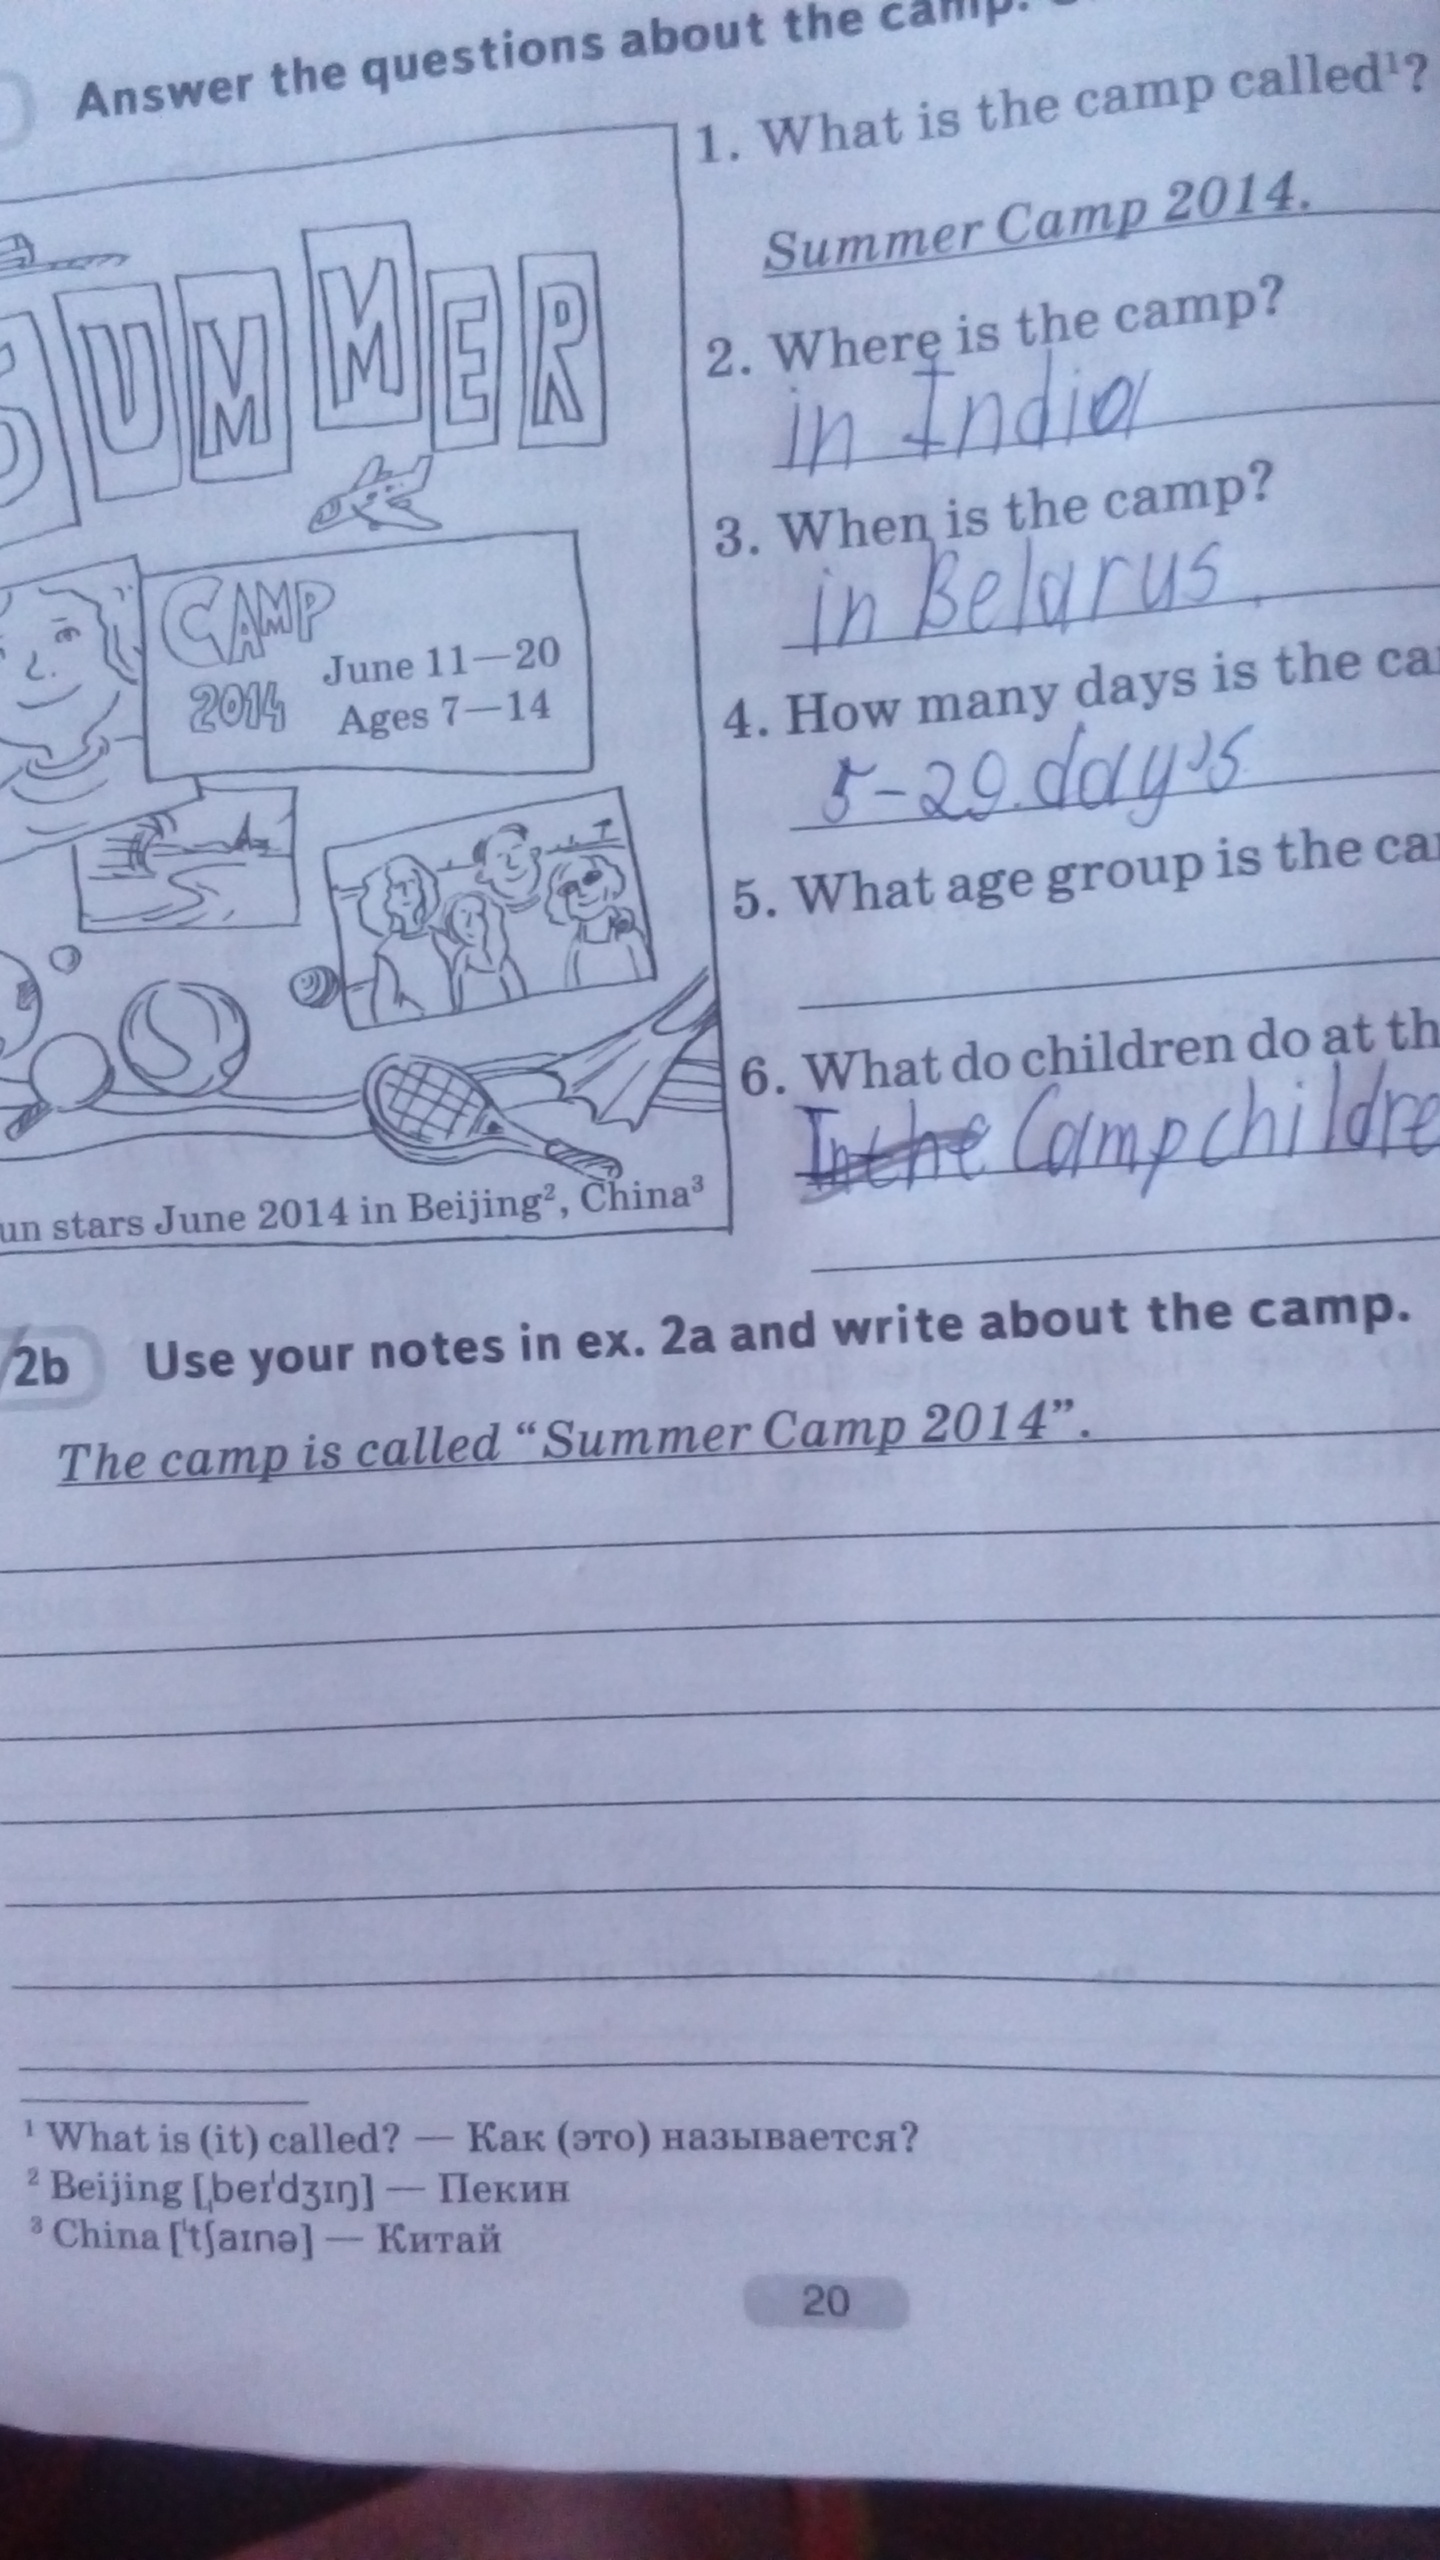 Answer the questions about the camp.
1. What is the camp called¹?
Summer Camp 2014.
2. Where is the camp?
in India
3. When is the camp?
in Belarus.
4. How many days is the
5-29. day's
5. What age group is the
6. What do children do at
In the Camp
SUMMER
CAMP
2014
June 11—20
Ages 7—14
stars June 2014 in Beijing², China³
2b Use your notes in ex. 2a and write about the camp.
The camp is called “Summer Camp 2014”.
¹ What is (it) called? — Как (это) называется?
² Beijing [ˌbeɪˈdʒɪŋ] — Пекин
³ China [ˈtʃaɪnə] — Китай
20